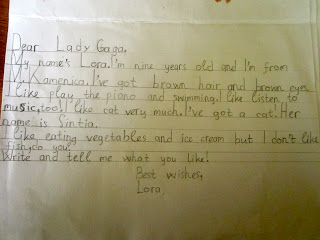 Dear Lady Gaga,
My name's Lora. I'm nine years old and I'm from
M. Kamenica. I've got brown hair and brown eyes.
I like play the piano and swimming. I like listen to
music, too. I like cat very much. I've got a cat. Her
name is Sintia.
I like eating vegetables and ice cream but I don't like
fish, do you?
Write and tell me what you like!
Best wishes,
Lora